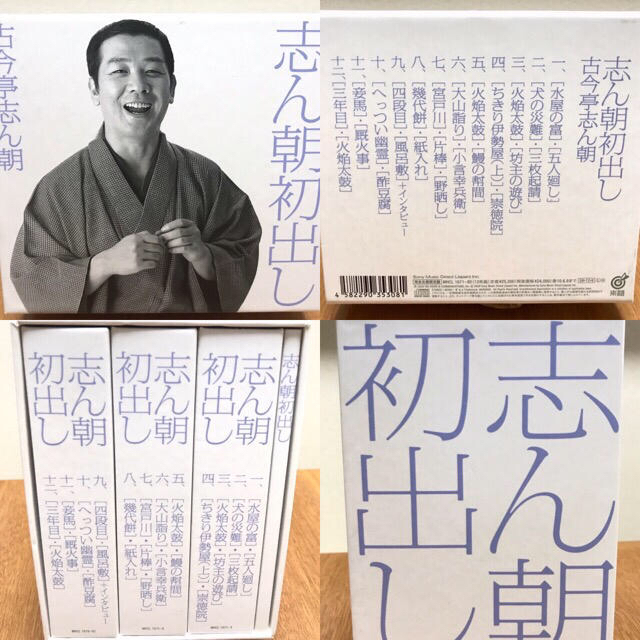 志ん朝初出し
古今亭志ん朝
志ん朝初出し
古今亭志ん朝
一、[水屋の富]・[五人廻し]
二、[犬の災難]・[三枚起請]
三、[火焔太鼓]・[坊主の遊び]
四、[ちきり伊勢屋(上)]・[崇徳院]
五、[火焔太鼓]・[鰻の幇間]
六、[大山詣り]・[小言幸兵衛]
七、[宮戸川]・[片棒]・[野晒し]
八、[幾代餅]・[紙入れ]
九、[四段目]・[風呂敷]+インタビュー
十、[へっつい幽霊]・[酢豆腐]
十一、[妾馬]・[厩火事]
十二、[三年目]・[火焔太鼓]
Sony Music Direct (Japan) Inc.
4 582290 353081
来福
志ん朝初出し
志ん朝
初出し
一、[水屋の富]・[五人廻し]
二、[犬の災難]・[三枚起請]
三、[火焔太鼓]・[坊主の遊び]
四、[ちきり伊勢屋(上)]・[崇徳院]
志ん朝
初出し
五、[火焔太鼓]・[鰻の幇間]
六、[大山詣り]・[小言幸兵衛]
七、[宮戸川]・[片棒]・[野晒し]
八、[幾代餅]・[紙入れ]
志ん朝
初出し
九、[四段目]・[風呂敷]+インタビュー
十、[へっつい幽霊]・[酢豆腐]
十一、[妾馬]・[厩火事]
十二、[三年目]・[火焔太鼓]
志ん朝
初出し